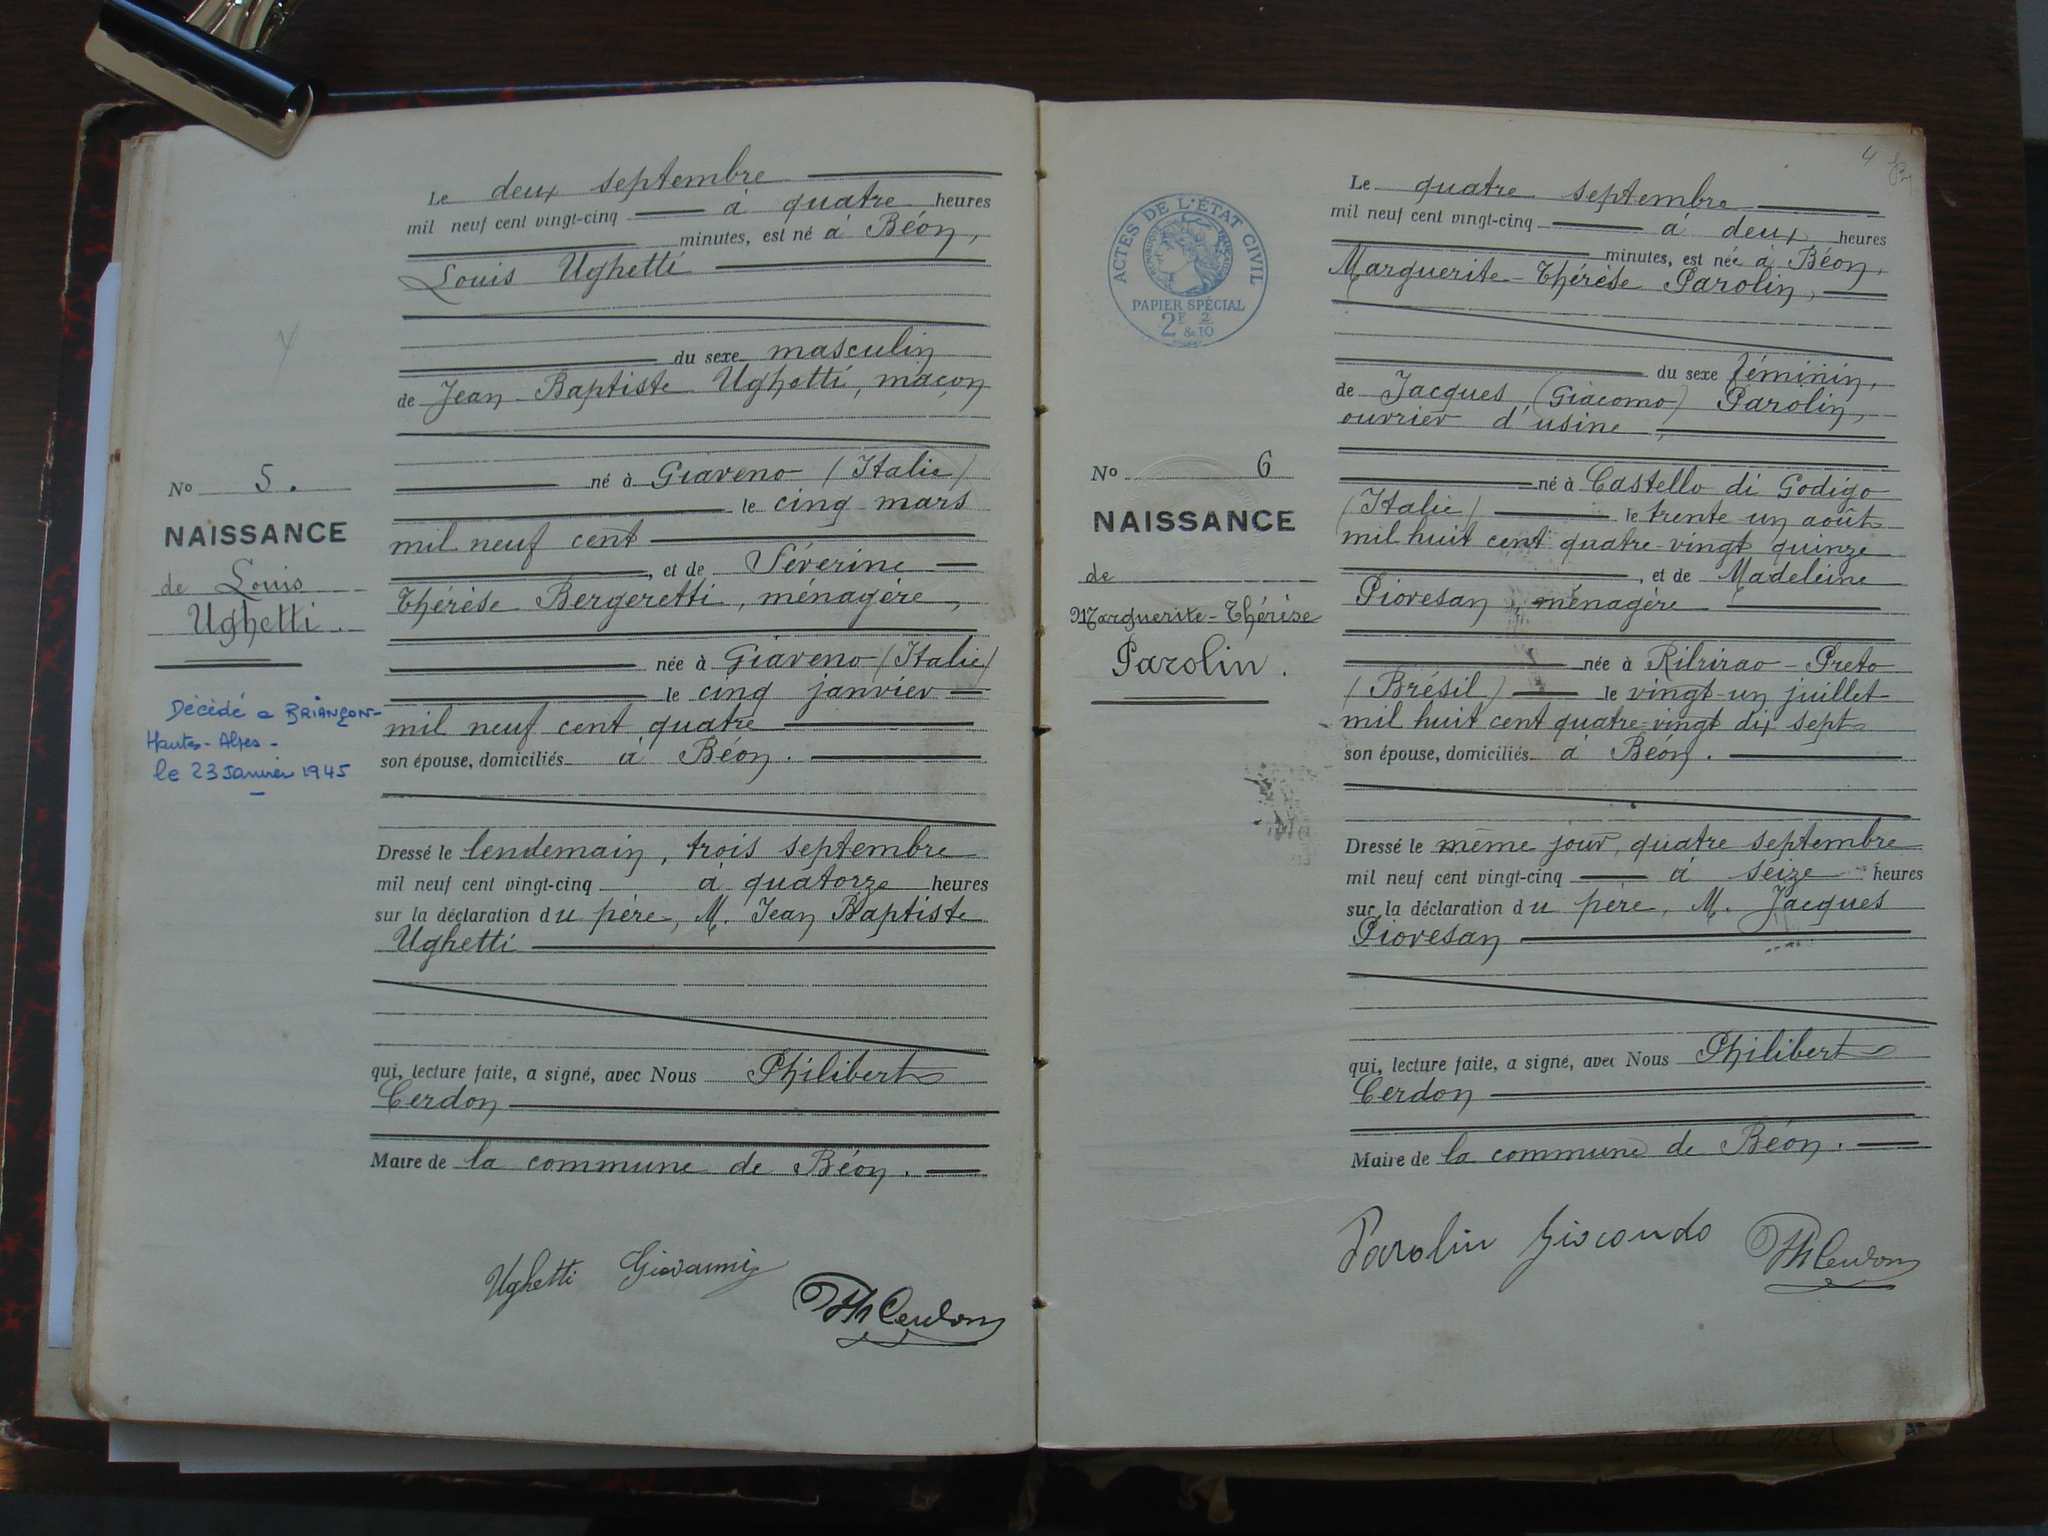 Le deux septembre
mil neuf cent vingt-cinq à quatre heures
minutes, est né à Béon,
Louis Ughetti
du sexe masculin
de Jean Baptiste Ughetti, maçon
né à Giaveno (Italie)
le cinq mars
mil neuf cent
, et de Séverine
Thérèse Bergeretti, ménagère,
née à Giaveno (Italie)
le cinq janvier
mil neuf cent quatre
son épouse, domiciliés à Béon.
Dressé le lendemain, trois septembre
mil neuf cent vingt-cinq à quatorze heures
sur la déclaration du père, M. Jean Baptiste
Ughetti
qui, lecture faite, a signé, avec Nous Philibert
Cerdon
Maire de la commune de Béon.
Ughetti Giovanni
Ph Cerdon
No 5.
NAISSANCE
de Louis
Ughetti.
Décédé a BRIANÇON-
Hautes-Alpes-
le 23 Janvier 1945
4
ACTES DE L'ÉTAT CIVIL
PAPIER SPÉCIAL
2F & 2/10
No 6
NAISSANCE
de
Marguerite-Thérèse
Parolin.
Le quatre septembre
mil neuf cent vingt-cinq à deux heures
minutes, est née à Béon,
Marguerite-Thérèse Parolin,
du sexe féminin,
de Jacques (Giacomo) Parolin,
ouvrier d'usine,
né à Castello di Godigo
(Italie) le trente un août
mil huit cent quatre-vingt quinze
, et de Madeleine
Piovesan, ménagère
née à Ribrirao-Preto
(Brésil) le vingt-un juillet
mil huit cent quatre-vingt dix sept
son épouse, domiciliés à Béon.
Dressé le même jour, quatre septembre
mil neuf cent vingt-cinq à seize heures
sur la déclaration du père, M. Jacques
Piovesan
qui, lecture faite, a signé, avec Nous Philibert
Cerdon
Maire de la commune de Béon.
Parolin Giocondo
Ph Cerdon